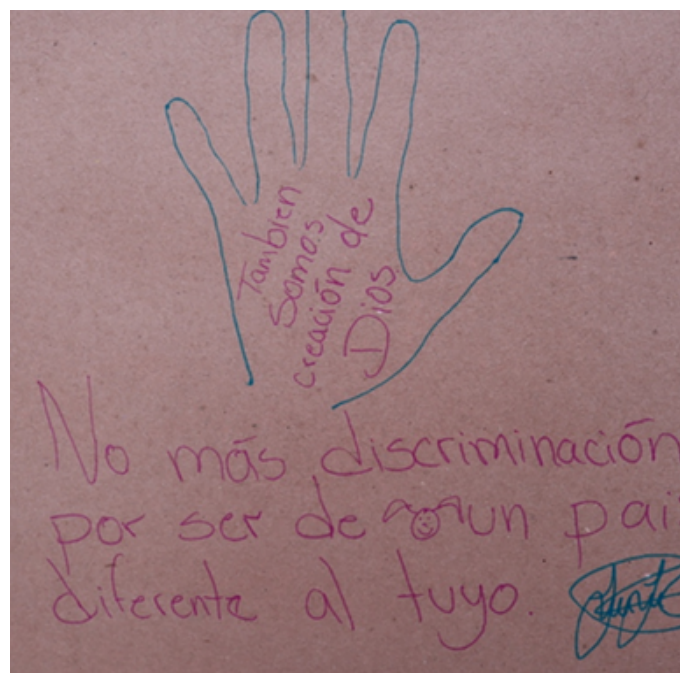 Tambien
somos
creación de
Dios
No más discriminación
por ser de un pai
diferente al tuyo.